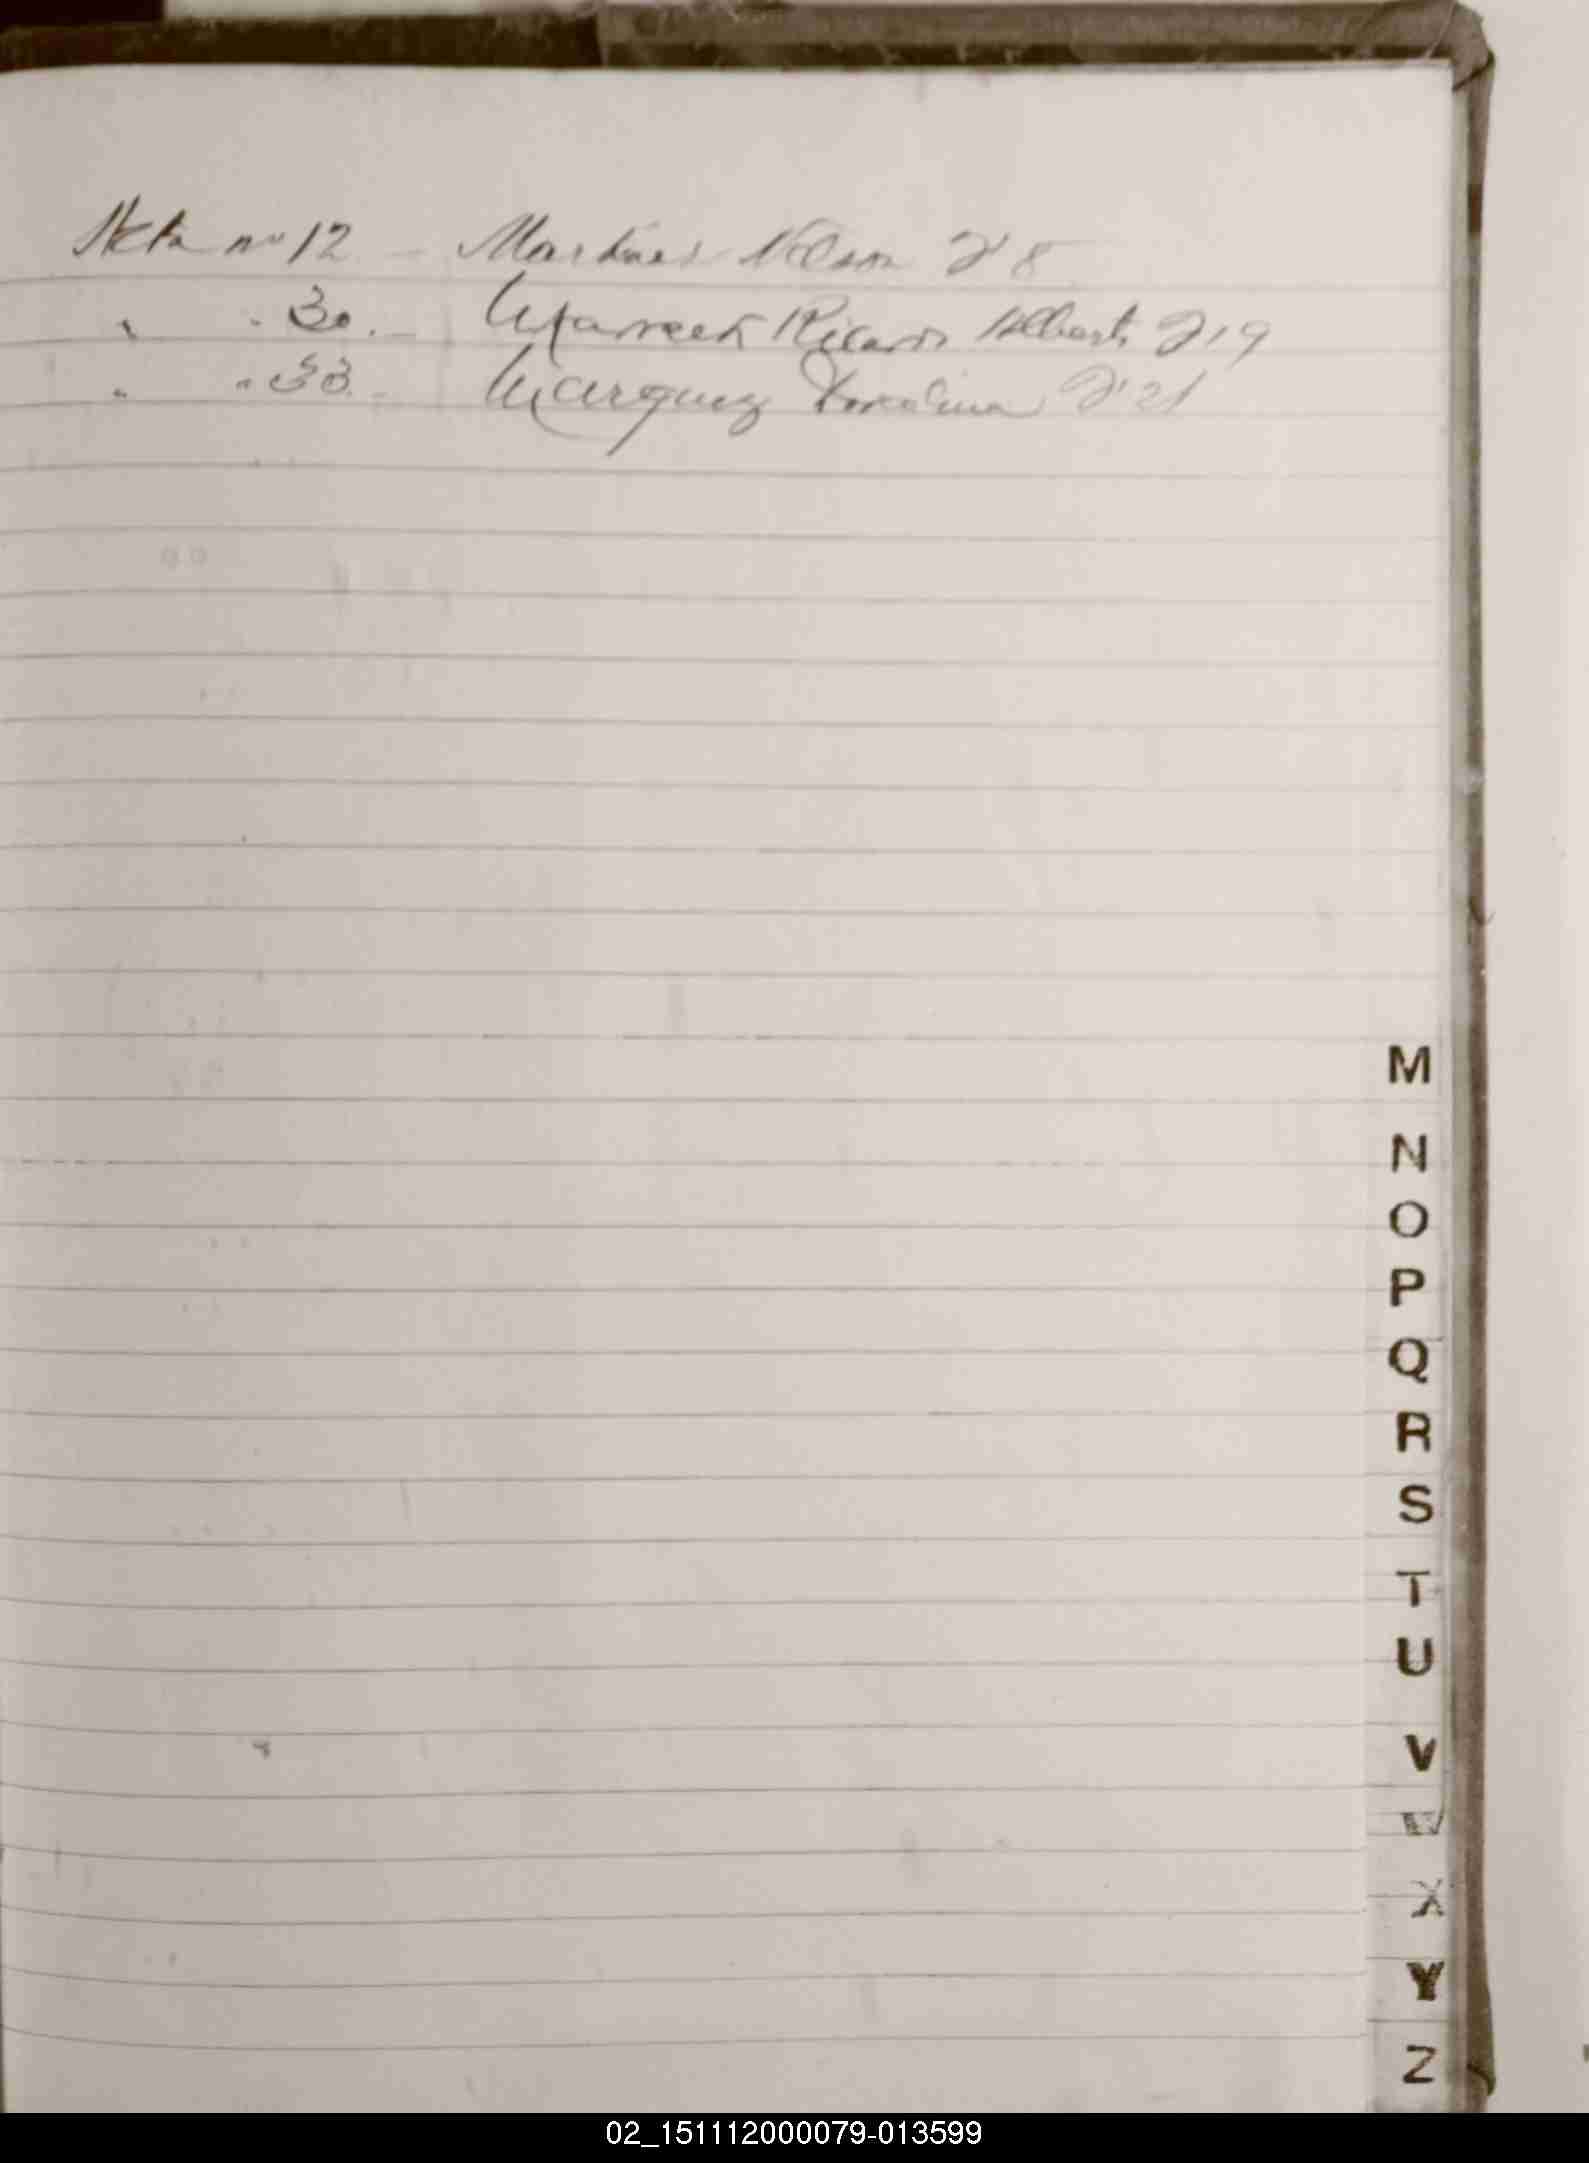 Acta nº 12 - Martinez Nelson Fº 8
" " 30. - Ricardo Alberto Fº 19
" " 33. - Marquez Fº 21
M
N
O
P
Q
R
S
T
U
V
W
X
Y
Z
02_151112000079-013599